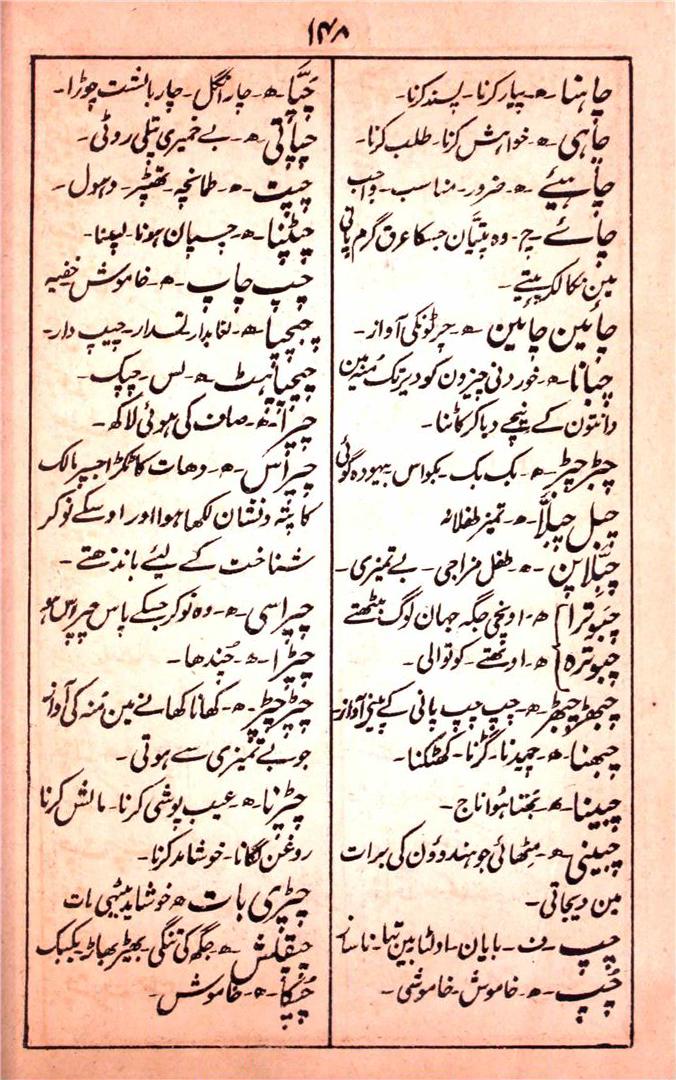 ۱۴۸
چاہنا ۔ھ۔ پیار کرنا۔ پسند کرنا۔
چاہی ۔ھ۔ خواہش کرنا۔ طلب کرنا۔
چاہیئے ۔ھ۔ ضرور۔ مناسب۔ واجب
چائے ۔چ۔ وہ پتیّان جسکا عرق گرم پانی
مین نکالکر پیتے۔
چائین چائین ۔ھ۔ چڑیونکی آواز۔
چبانا ۔ھ۔ خوردنی چیزون کو دیر تک مُنہ مین
دانتون کے نیچے دبا کر کاٹنا۔
چبڑ چبڑ ۔ھ۔ بک بک۔ بکواس بیہودہ گوئی
چبل چبلّا ۔ھ۔ تمیز طفلانہ
چبلّا پن ۔ھ۔ طفل مزاجی۔ بے تمیزی۔
چبوترا ۔ھ۔ اونچی جگہ جہان لوگ بیٹھتے
چبوترہ ۔ھ۔ اوٹھتے۔ کوتوالی۔
چبھڑ چبھڑ ۔ھ۔ چپ چپ پانی کے پینے آواز۔
چبھنا ۔ھ۔ چھیدنا۔ گڑنا۔ کھٹکنا۔
چبینا ۔ھ۔ بُھنا ہوا ناج۔
چبینی ۔ھ۔ مٹھائی جو ہندوؤن کی برات
مین دیجاتی۔
چپ ۔ف۔ بایان۔ اولٹا ہین تہا۔ ناساز
چُپ ۔ھ۔ خاموش۔ خاموشی۔
چَپّا ۔ھ۔ چار انگل۔ چار بالشت چوڑا۔
چپاتی ۔ھ۔ بے خمیری پتلی روٹی۔
چپت ۔ھ۔ طمانچہ۔ تھپڑ۔ دھول۔
چپٹنا ۔ھ۔ چسپان ہونا۔ لپٹنا۔
چپ چاپ ۔ھ۔ خاموش خفیہ
چپچپا ۔ھ۔ لعابدار۔ لسدار۔ چیپ دار۔
چپچپاہٹ ۔ھ۔ لس۔ چپک۔
چپرا ۔ھ۔ صاف کی ہوئی لاکھ۔
چپراس ۔ھ۔ دھات کا ٹکڑا جسپر مالک
کا پتہ و نشان لکھا ہوا اور اوسکے نوکر
شناخت کے لیئے باندھتے۔
چپراسی ۔ھ۔ وہ نوکر جسکے پاس چپراس ہو
چپڑا ۔ھ۔ چُندھا۔
چپڑ چپڑ ۔ھ۔ کھانا کھانے مین مُنہ کی آواز
جو بے تمیزی سے ہوتی۔
چپڑنا ۔ھ۔ عیب پوشی کرنا۔ مالش کرنا
روغن لگانا۔ خوشامد کرنا۔
چپڑی بات ۔ھ۔ خوشامد میٹھی بات
چپقلش ۔ھ۔ جگہ کی تنگی۔ بھیڑ بھاڑ۔ یکبیک
چُپکا ۔ھ۔ خاموش۔